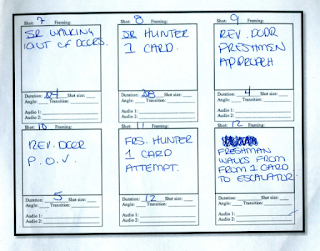 Shot: 7 Framing:
SR WALKING
OUT OF DOORS.
Duration: 24 Shot size:
Angle: Transition:
Audio 1:
Audio 2:
Shot: 8 Framing:
SR HUNTER
1 CARD.
Duration: 28 Shot size:
Angle: Transition:
Audio 1:
Audio 2:
Shot: 9 Framing:
REV. DOOR
FRESHMEN
APPROACH
Duration: 4 Shot size:
Angle: Transition:
Audio 1:
Audio 2:
Shot: 10 Framing:
REV. DOOR
P.O.V.
Duration: 5 Shot size:
Angle: Transition:
Audio 1:
Audio 2:
Shot: 11 Framing:
FRS. HUNTER
1 CARD
ATTEMPT.
Duration: 12 Shot size:
Angle: Transition:
Audio 1:
Audio 2:
Shot: 12 Framing:
FRESHMAN
WALKS FROM
FROM 1 CARD
TO ESCALATOR.
Duration: Shot size:
Angle: Transition:
Audio 1:
Audio 2: